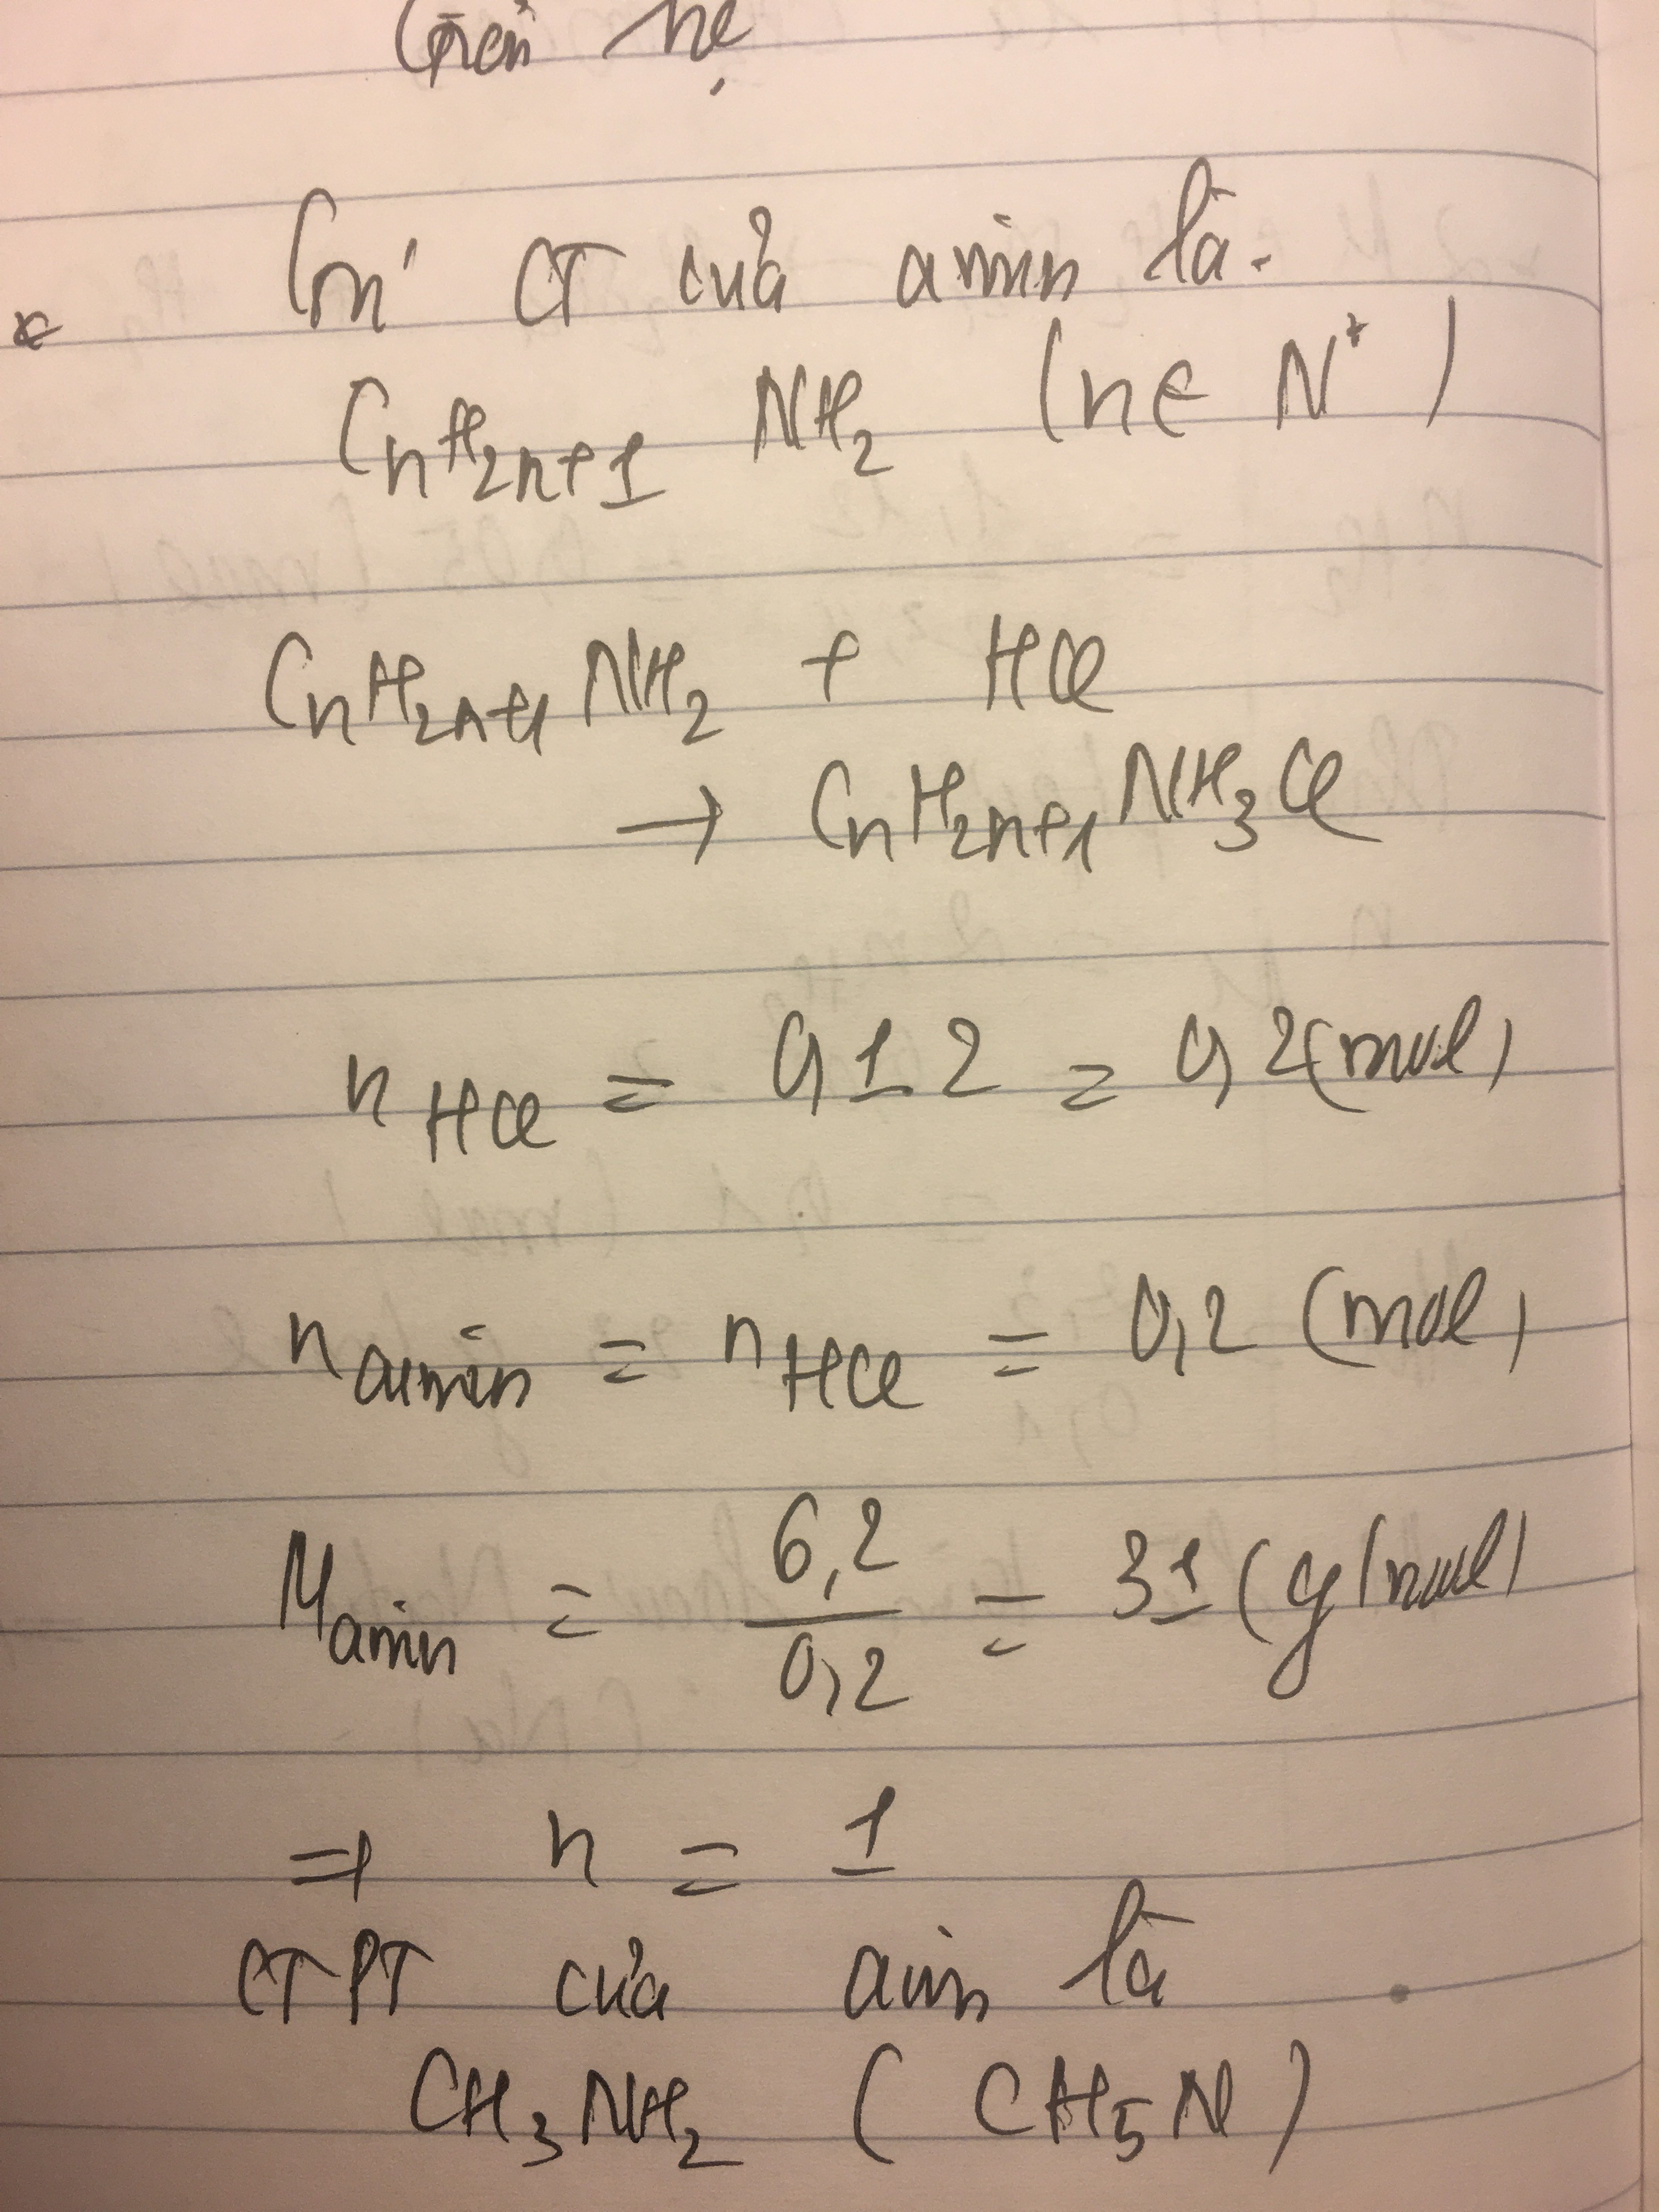 nè
Gọi CT của amin là.
CnH2n+1 NH2 (n ∈ N*)
CnH2n+1NH2 + HCl
→ CnH2n+1NH3Cl
nHCl = 0,1.2 = 0,2(mol)
namin = nHCl = 0,2 (mol)
Mamin = 6,2/0,2 = 31 (g/mol)
⇒ n = 1
CTPT của amin là
CH3NH2 (CH5N)